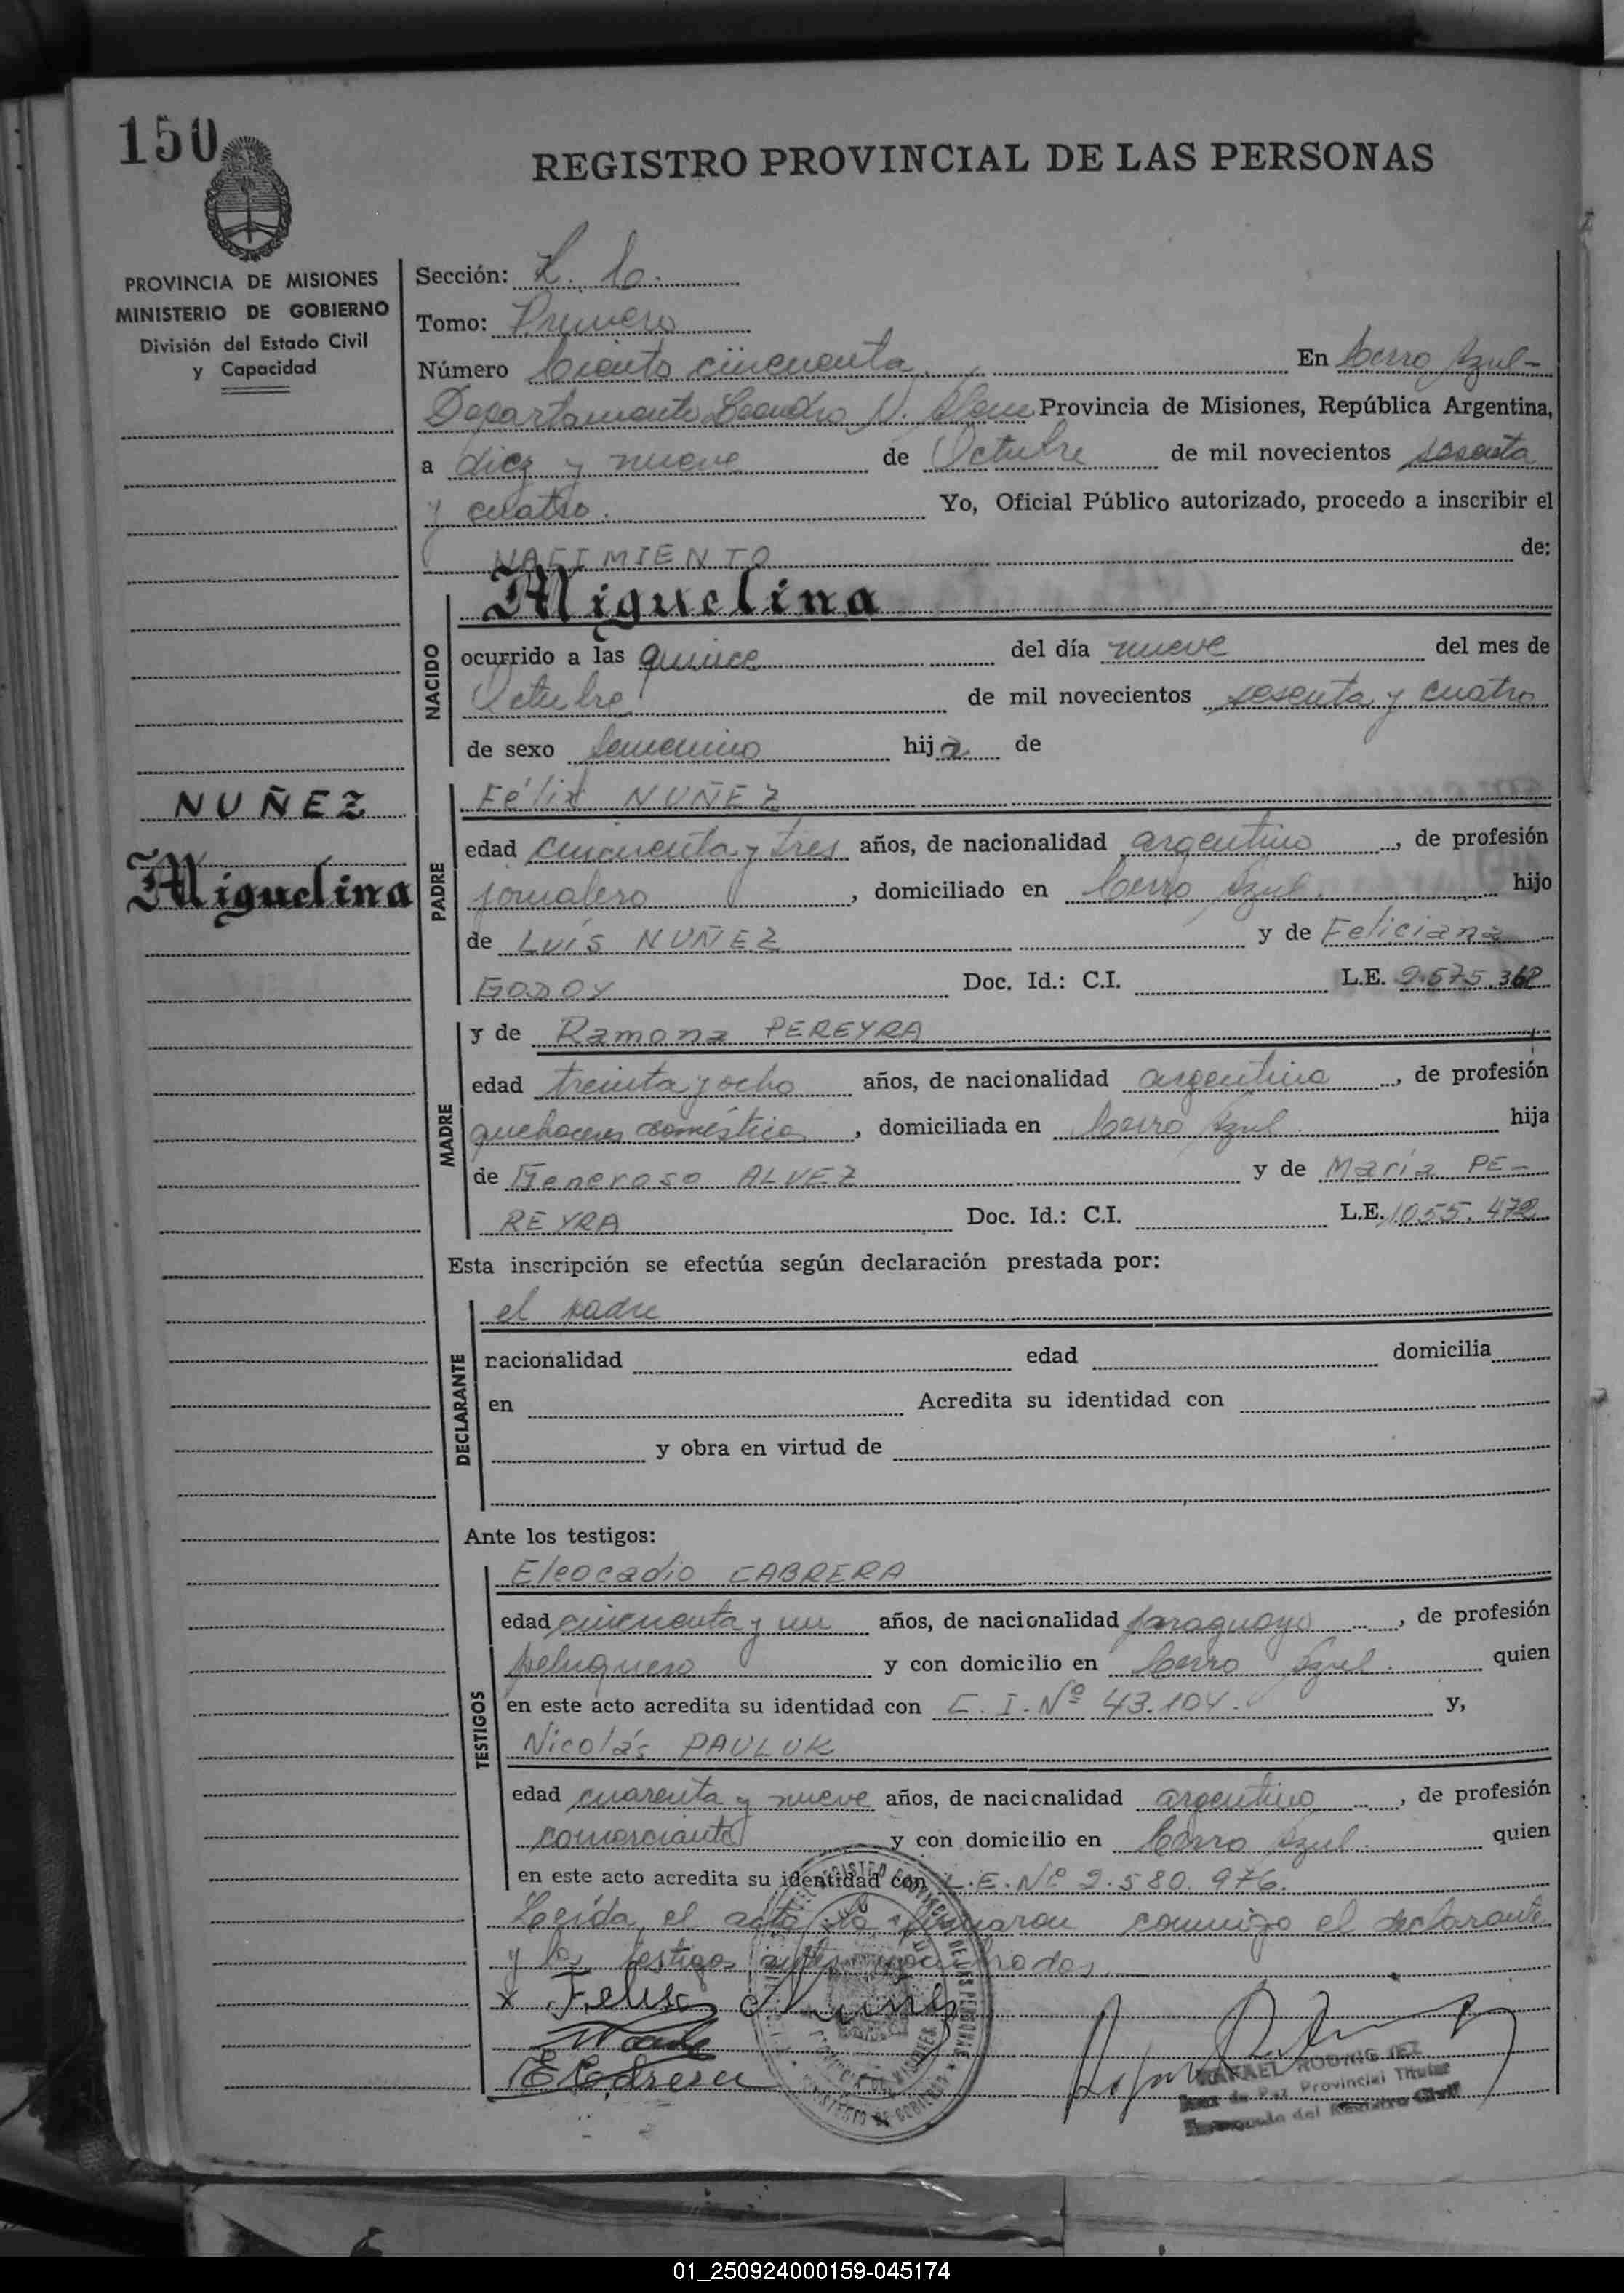 150
REGISTRO PROVINCIAL DE LAS PERSONAS
PROVINCIA DE MISIONES
MINISTERIO DE GOBIERNO
División del Estado Civil
y Capacidad
Sección:
Tomo: Primero
Número Ciento cincuenta En Cerro Azul-
Departamento Leandro N. Alem Provincia de Misiones, República Argentina,
a diez y nueve de Octubre de mil novecientos sesenta
y cuatro. Yo, Oficial Público autorizado, procedo a inscribir el
NACIMIENTO de:
NACIDO
Miguelina
ocurrido a las quince del día nueve del mes de
Octubre de mil novecientos sesenta y cuatro
de sexo femenino hija de
NUÑEZ
Miguelina
PADRE
Félix NUÑEZ
edad cincuenta y tres años, de nacionalidad argentino, de profesión
jornalero, domiciliado en Cerro Azul. hijo
de Luís NUÑEZ y de Feliciana
GODOY Doc. Id.: C.I. L.E. 2.575.368
MADRE
y de Ramona PEREYRA
edad treinta y ocho años, de nacionalidad argentina, de profesión
quehaceres domésticos, domiciliada en Cerro Azul hija
de Generoso ALVEZ y de María PE-
REYRA Doc. Id.: C.I. L.E. 1.055.472
Esta inscripción se efectúa según declaración prestada por:
DECLARANTE
el padre
nacionalidad edad domicilia
en Acredita su identidad con
y obra en virtud de
Ante los testigos:
TESTIGOS
Eleocadio CABRERA
edad cincuenta y un años, de nacionalidad paraguayo, de profesión
peluquero y con domicilio en Cerro Azul. quien
en este acto acredita su identidad con C.I.Nº 43.104. y,
Nicolás PAULUK
edad cuarenta y nueve años, de nacionalidad argentino, de profesión
comerciante y con domicilio en Cerro Azul. quien
en este acto acredita su identidad con L.E.Nº 2.580.976.
Leída el acta la firmaron conmigo el declarante
y los testigos antes nombrados.
x Felis Nuñes
E Cabrera
RAFAEL RODRIGUEZ
Juez de Paz Provincial Titular
Encargado del Registro Civil
01_250924000159-045174